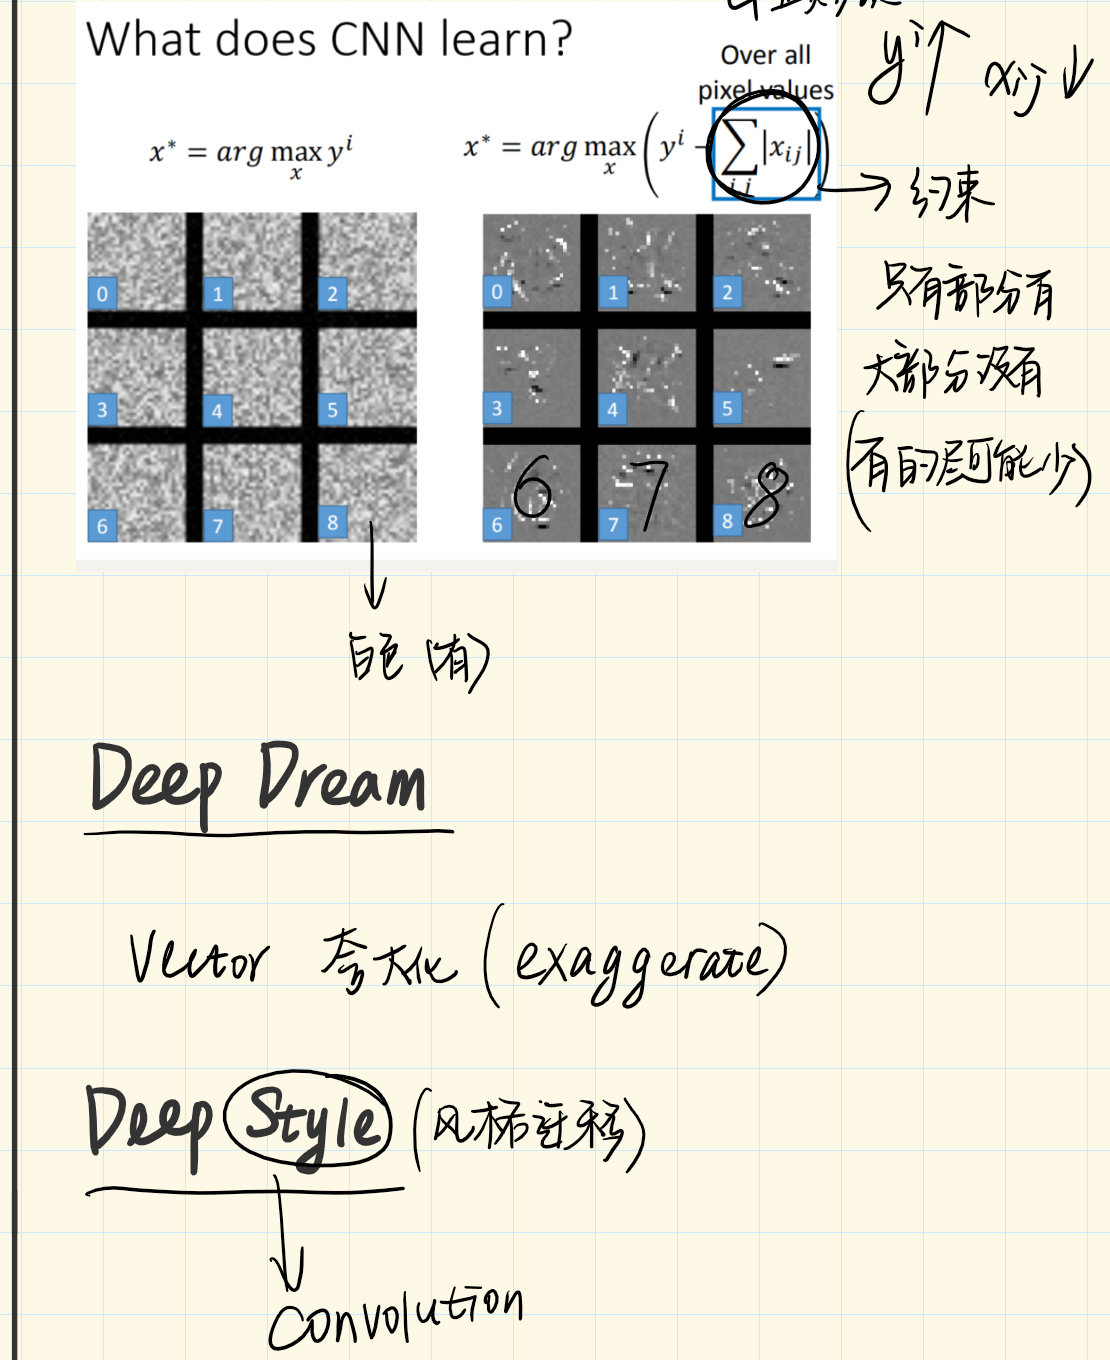 What does CNN learn?
Over all
pixel values
y^i↑ x_ij↓
x* = arg max_x y^i
x* = arg max_x (y^i - ∑_{i,j} |x_ij|)
→ 约束
只有部分有
大部分没有
(有的尽可能少)
0 1 2
3 4 5
6 7 8
0 1 2
3 4 5
6 7 8
6 7 8
白色(有)
Deep Dream
Vector 夸大化 (exaggerate)
Deep Style (风格迁移)
Convolution